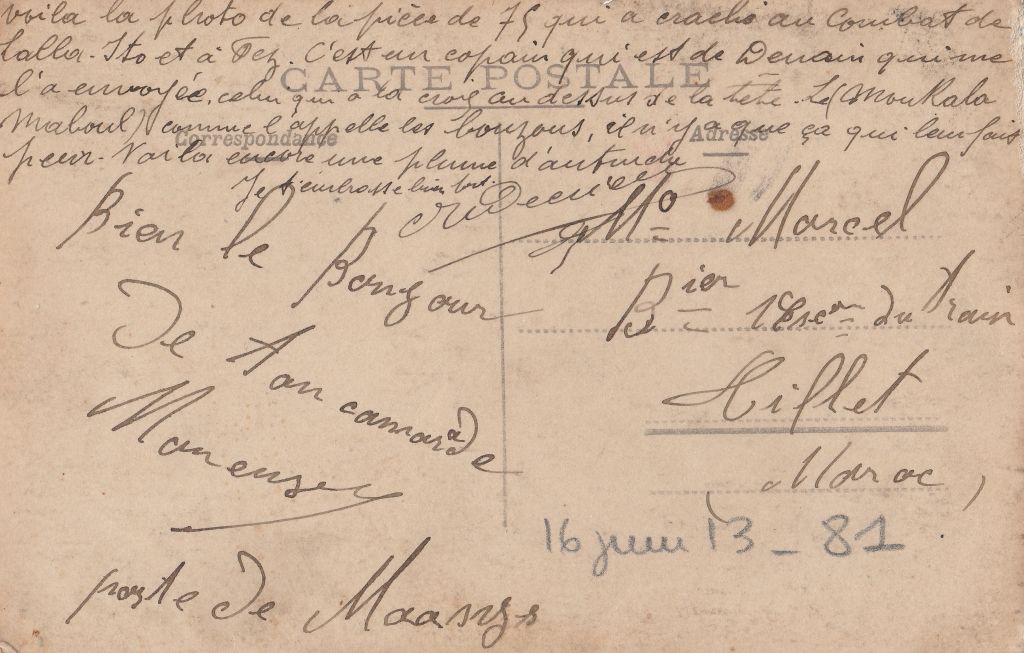 voila la photo de la pièce de 75 qui a craché au Combat de
Lalla-Ito et à Fez. C'est un copain qui est de Denain qui me
CARTE POSTALE
l'a envoyée, celui qui a la croix au dessus de la tête. Le (Moukala
Maboul) comme l'appelle les bouzous, il n'y a que ça qui leur fais
Correspondance
Adresse
peur. Voila encore une plume d'autruche
Je t'embrasse bien fort
Bien le Bonjour
De ton camarade
poste de
Mr Marcel
Bier 1er Escon du Train
Maroc
16 juin 13 - 81